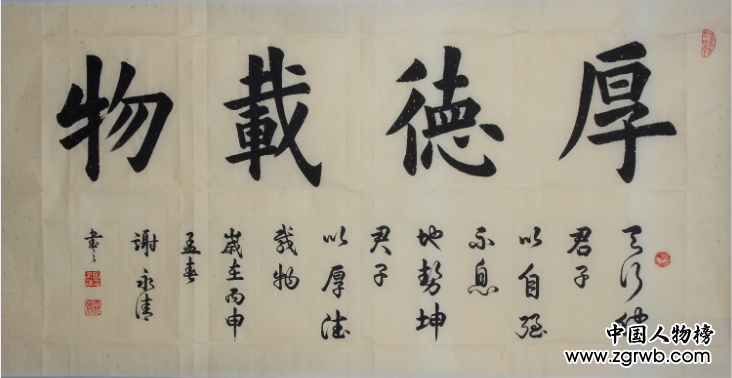 厚德載物
天行健
君子
以自强
不息
地势坤
君子
以厚德
载物
歲在丙申
孟春
謝永清
書
中国人物榜
www.zgrwb.com